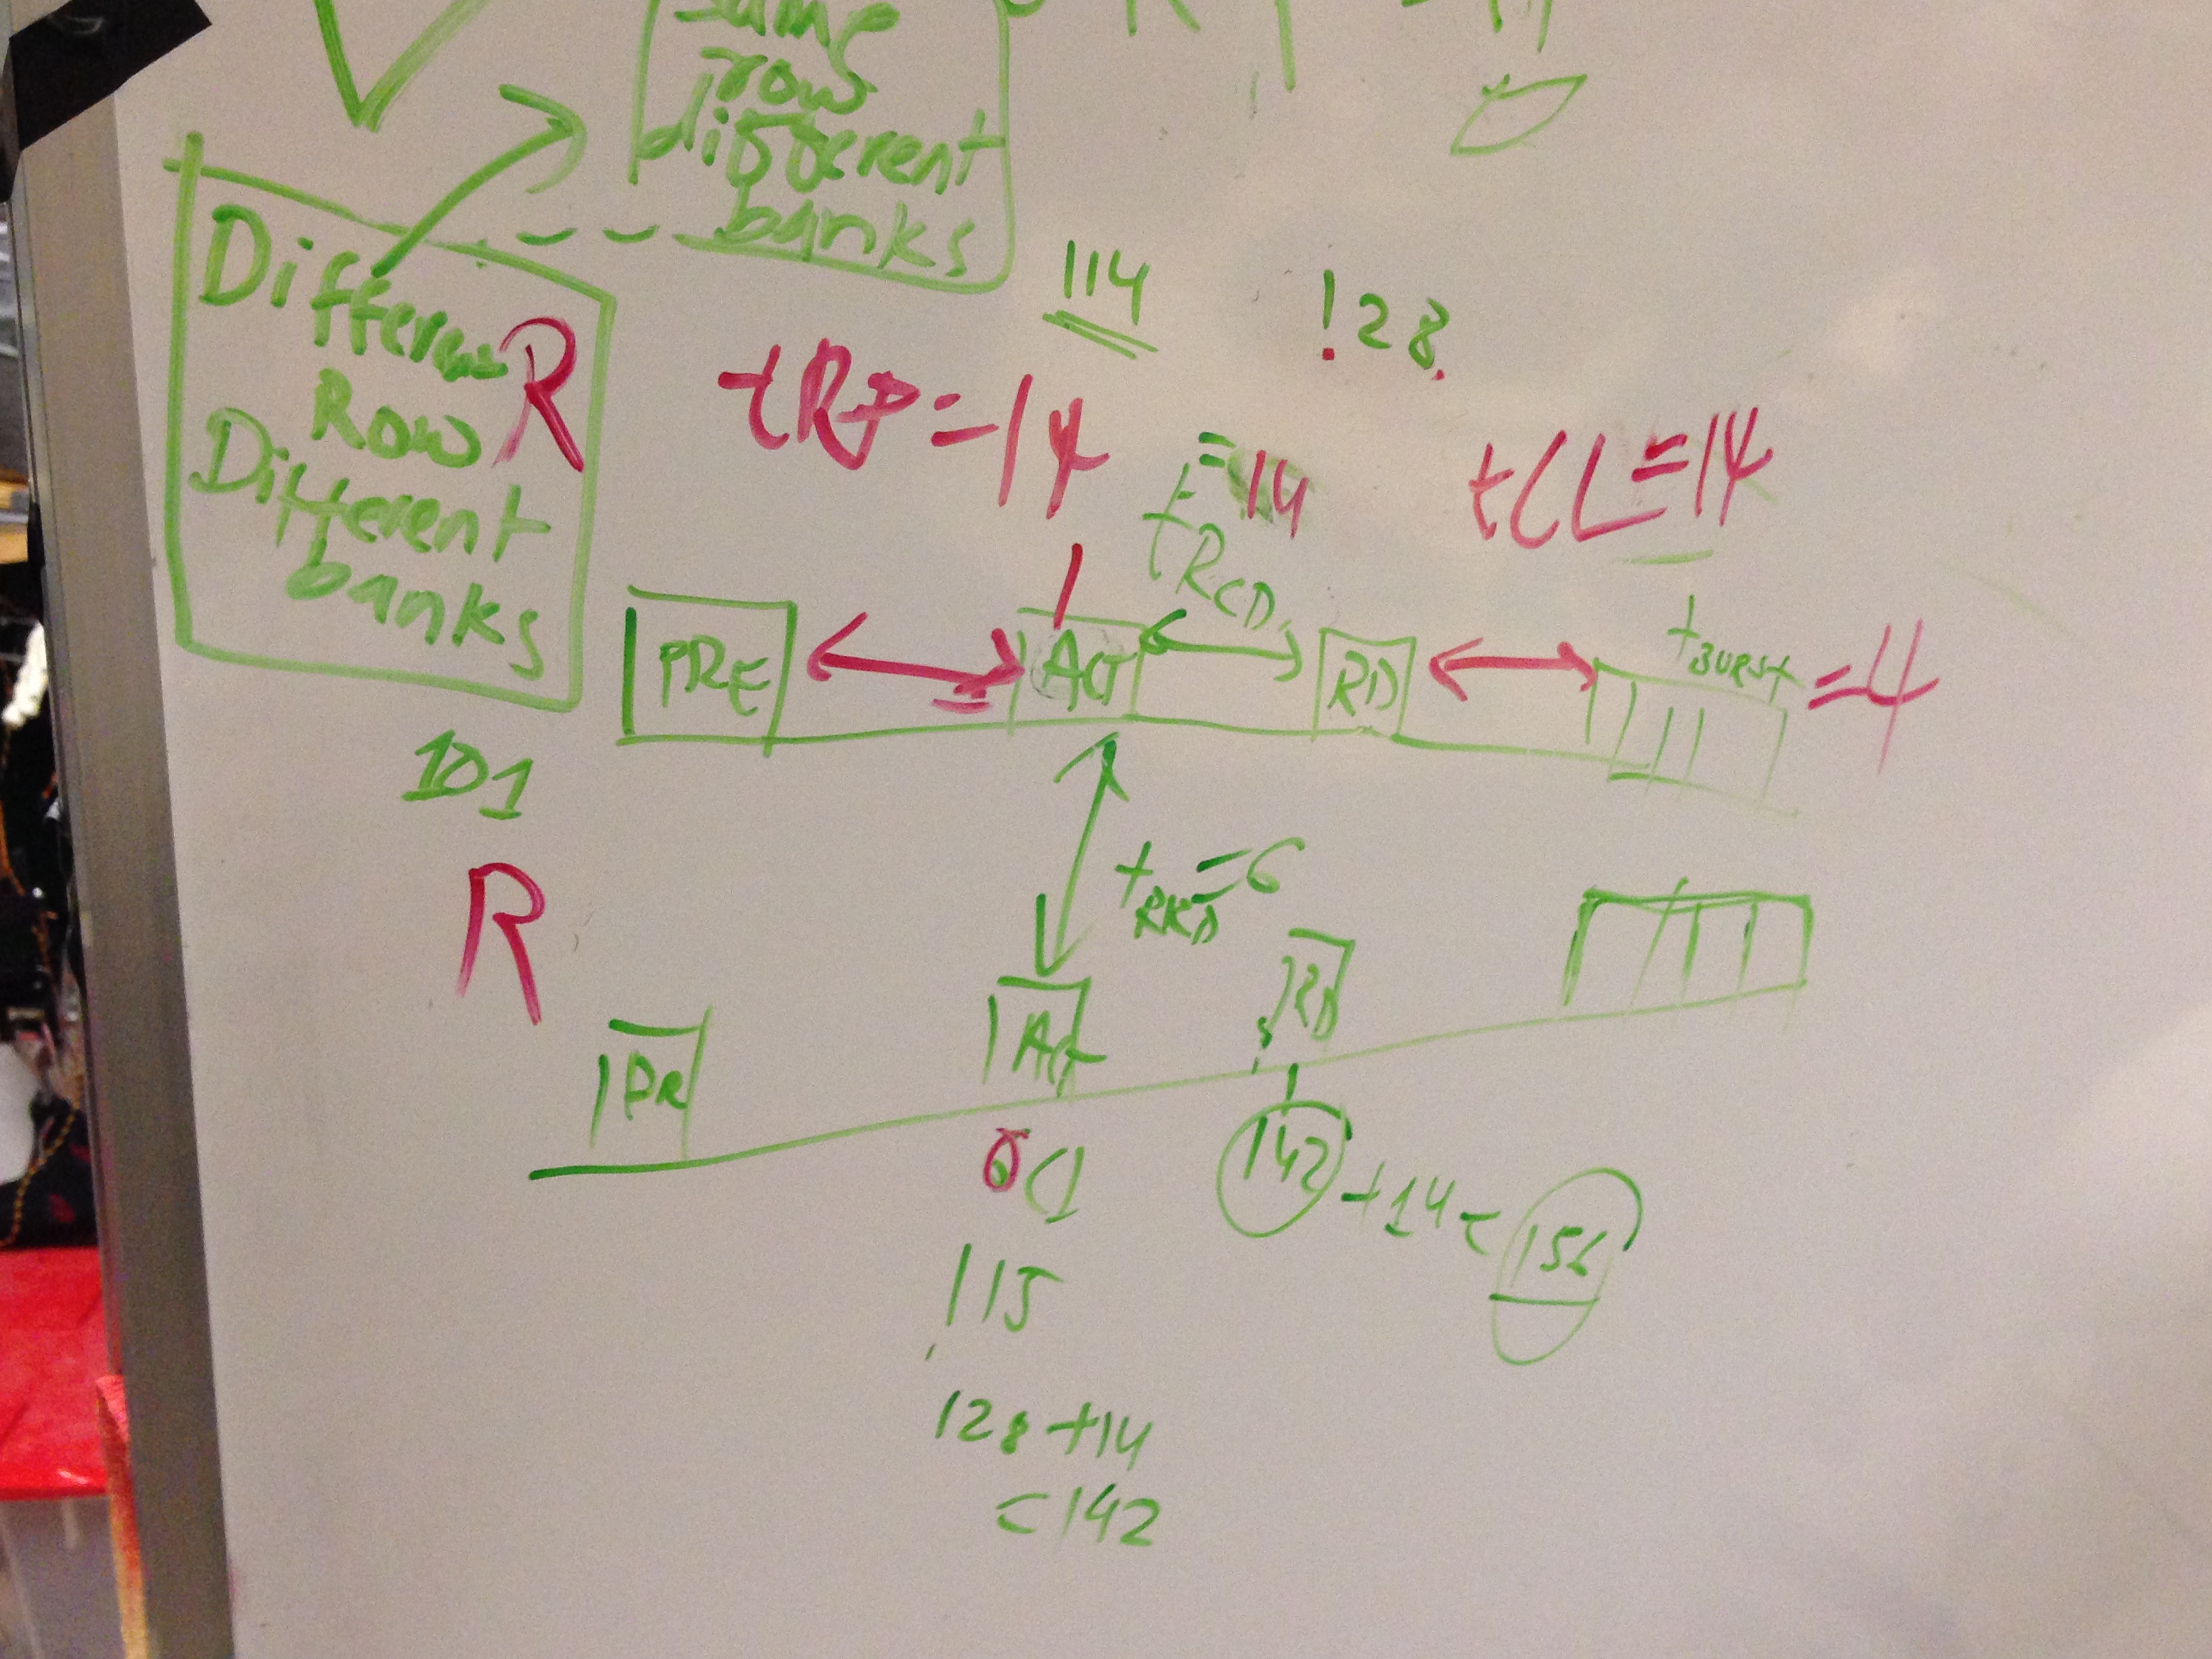 same
row
different
banks
Different
Row
Different
banks
R
114
128
tRP=14
=14
tRCD
tCL=14
PRE
ACT
RD
tBURST=4
101
R
tRRD=6
PR
ACT
RD
142
+14=
156
115
128+14
=142